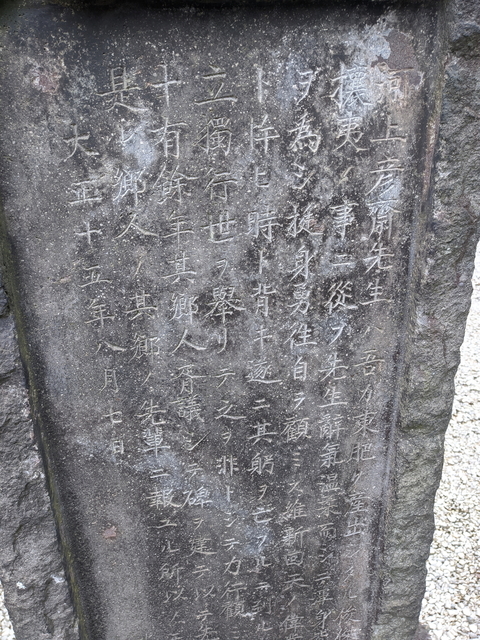 上彦齋先生ハ吾カ東肥ノ産出
攘夷ノ事ニ從フ先生辭氣温柔而シテ
ヲ為シ挺身勇徃自ラ顧ミス維新回天ノ偉
ト忤ヒ時ト背キ遂ニ其躬ヲ亡フ
立獨行世ヲ舉リテ之ヲ非トシテ力行顧ミ
十有餘年其鄉人胥議シテ碑ヲ建テ以テ
是レ鄉人ノ其鄉ノ先輩ニ報ユル所以
大正十五年八月七日